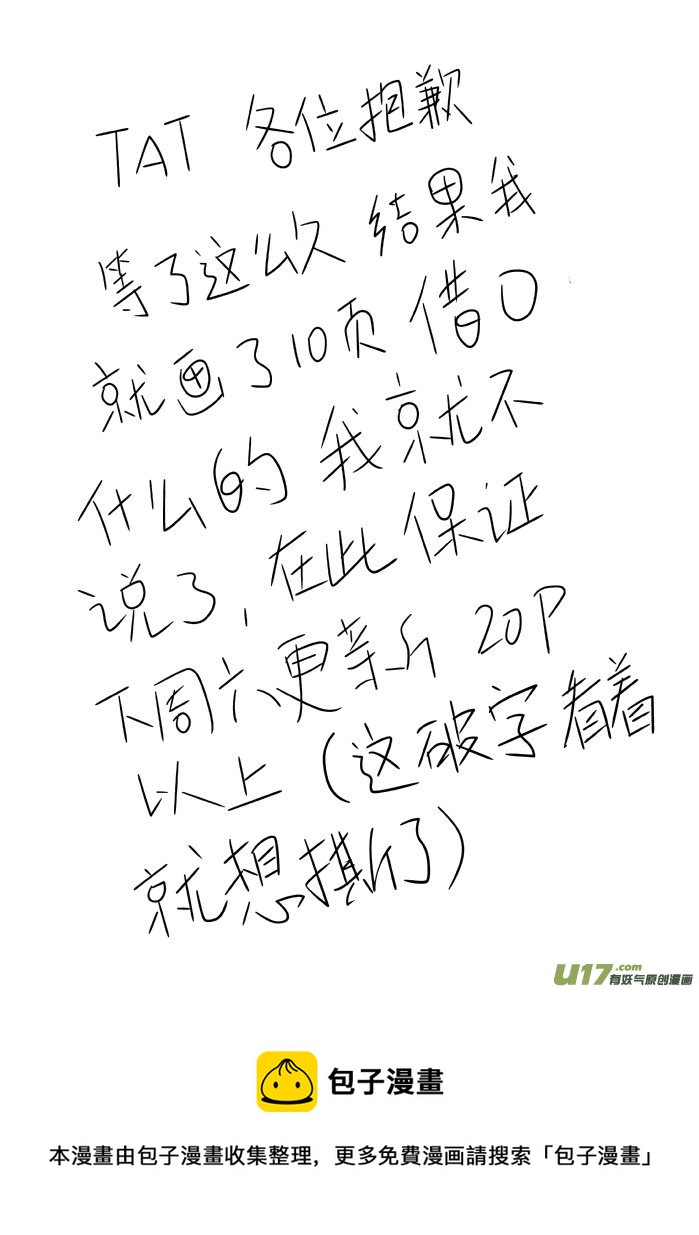 TAT 各位抱歉
等了这么久 结果我
就画了10页 借口
什么的 我就不
说了, 在此 保证
下周六更新 20P
以上 (这破字看着
就想撕了)
U17.com
有妖气原创漫画
包子漫畫
本漫畫由包子漫畫收集整理，更多免費漫画請搜索「包子漫畫」